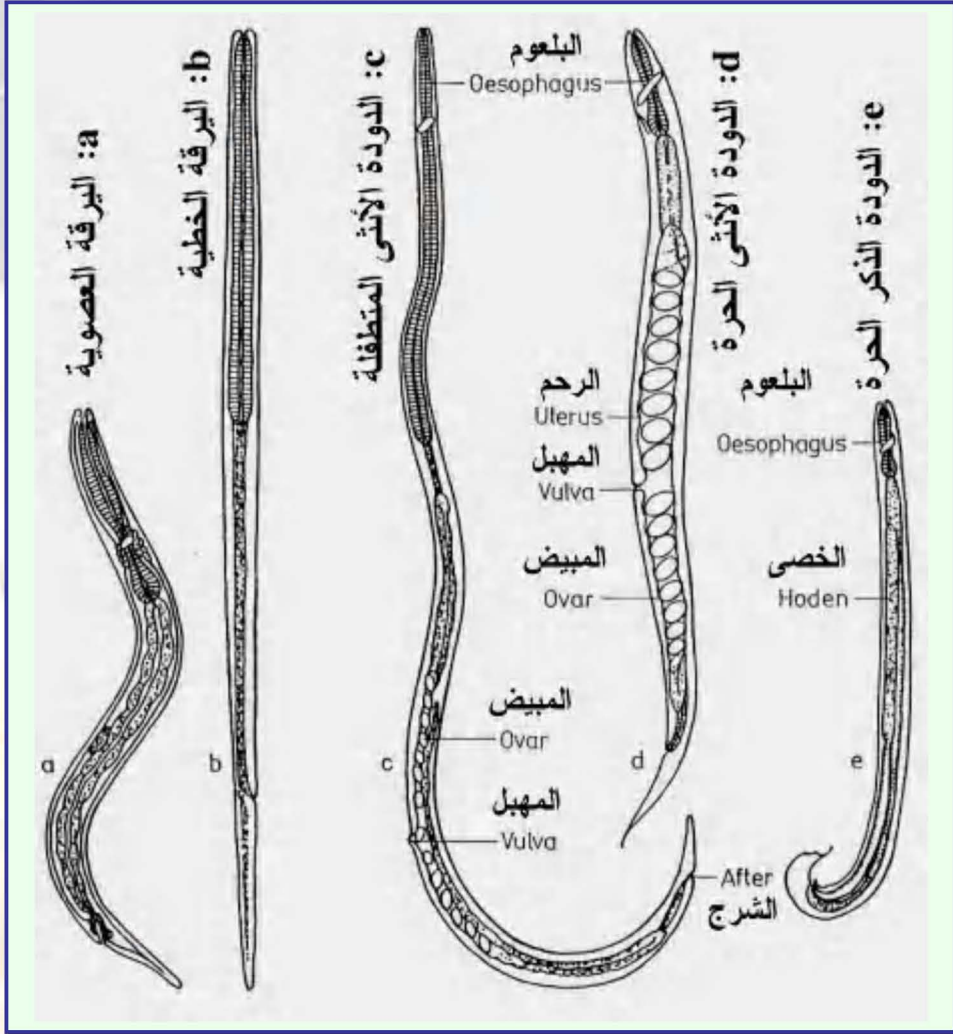 a: اليرقة العصوية
b: اليرقة الخطية
c: الدودة الأنثى المتطفلة
البلعوم
Oesophagus
d: الدودة الأنثى الحرة
e: الدودة الذكر الحرة
الرحم
Uterus
المهبل
Vulva
المبيض
Ovar
البلعوم
Oesophagus
الخصى
Hoden
المبيض
Ovar
المهبل
Vulva
After
الشرج
a
b
c
d
e